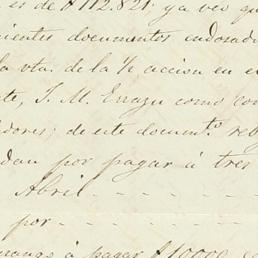 es de $112.821; ya ves qu
ientes documentos endosad
la vta. de la ½ accion en e
te, J. M. Errazu como com
dores; de este documto. re
dan por pagar á tres
Abril
por
á pagar $10000